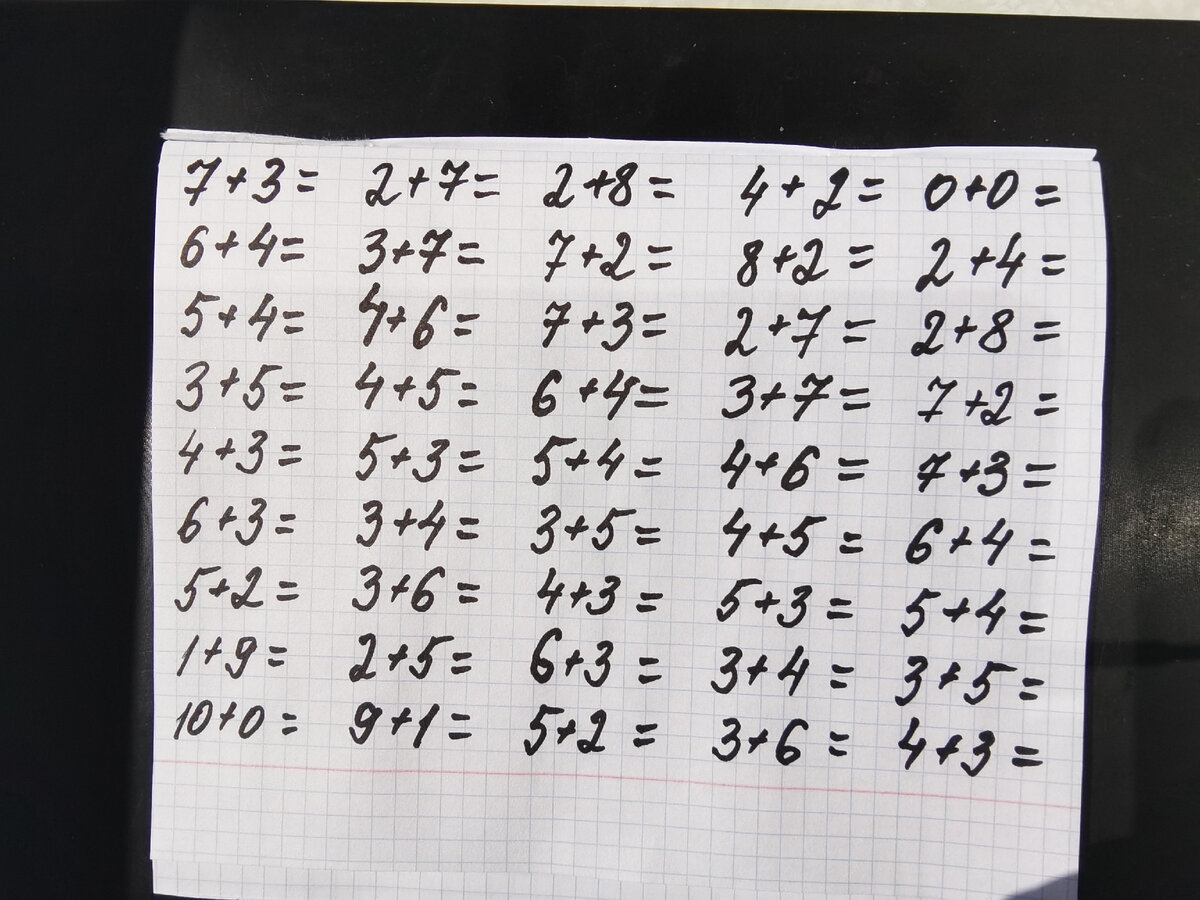 7+3= 2+7= 2+8= 4+2= 0+0=
6+4= 3+7= 7+2= 8+2= 2+4=
5+4= 4+6= 7+3= 2+7= 2+8=
3+5= 4+5= 6+4= 3+7= 7+2=
4+3= 5+3= 5+4= 4+6= 7+3=
6+3= 3+4= 3+5= 4+5= 6+4=
5+2= 3+6= 4+3= 5+3= 5+4=
1+9= 2+5= 6+3= 3+4= 3+5=
10+0= 9+1= 5+2= 3+6= 4+3=